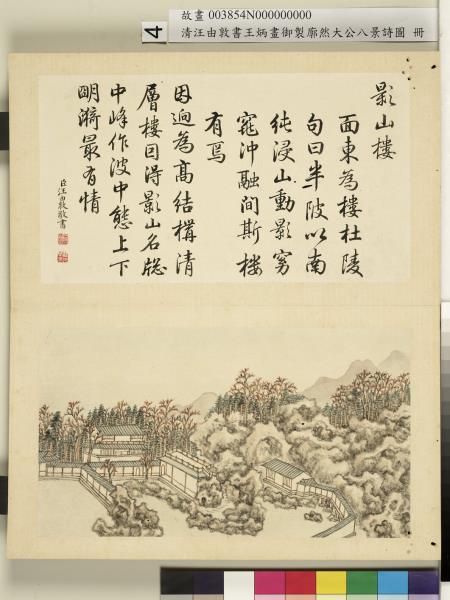 故畫 003854N000000000
清汪由敦書王炳畫御製廓然大公八景詩圖 冊
4
影山樓
面東為樓杜陵
句曰半陂以南
純浸山動影窈
窕沖融間斯樓
有焉
因迥為高結構清
層樓因得影山名
中峰作波中態上下
明漪最有情
臣汪由敦敬書